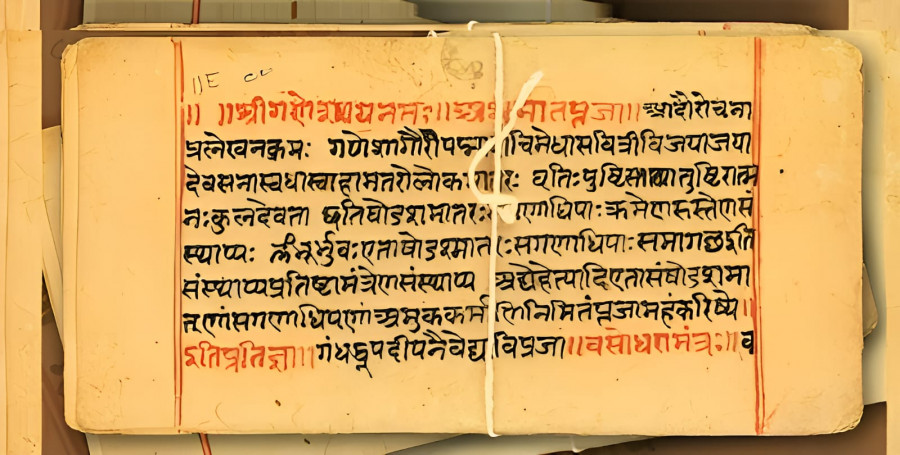 ॥ ॥श्रीगणेशायनमः॥अथ मातृपूजा॥आदौरोचना
प्रलेखनक्रमः गणेशगौरीपद्मा चिमेधासवित्रीविजयाजया
देवसेनास्वधास्वाहामातरोलोकमातरः धृतिःपुष्टिस्तथातुष्टिरात्म
नःकुलदेवता इतिषोडशमातरः गणाधिपाःक्रमेणहस्तेणसं
स्थाप्यः भूर्भुवःएताषोडशमातरःसगणाधिपाःसमागछइति
संस्थाप्यप्रतिष्टामंत्रेणसंस्थाप्य अद्येहेत्यादिएतासंषोडशमा
तृणांसगणाधिपणांअमुककर्म निमितंपूजामहंकरिष्ये॥
इतिप्रतिज्ञा॥गंधधूपदीपनैवेद्य विपूजा॥वसोधरामंत्रः॥व